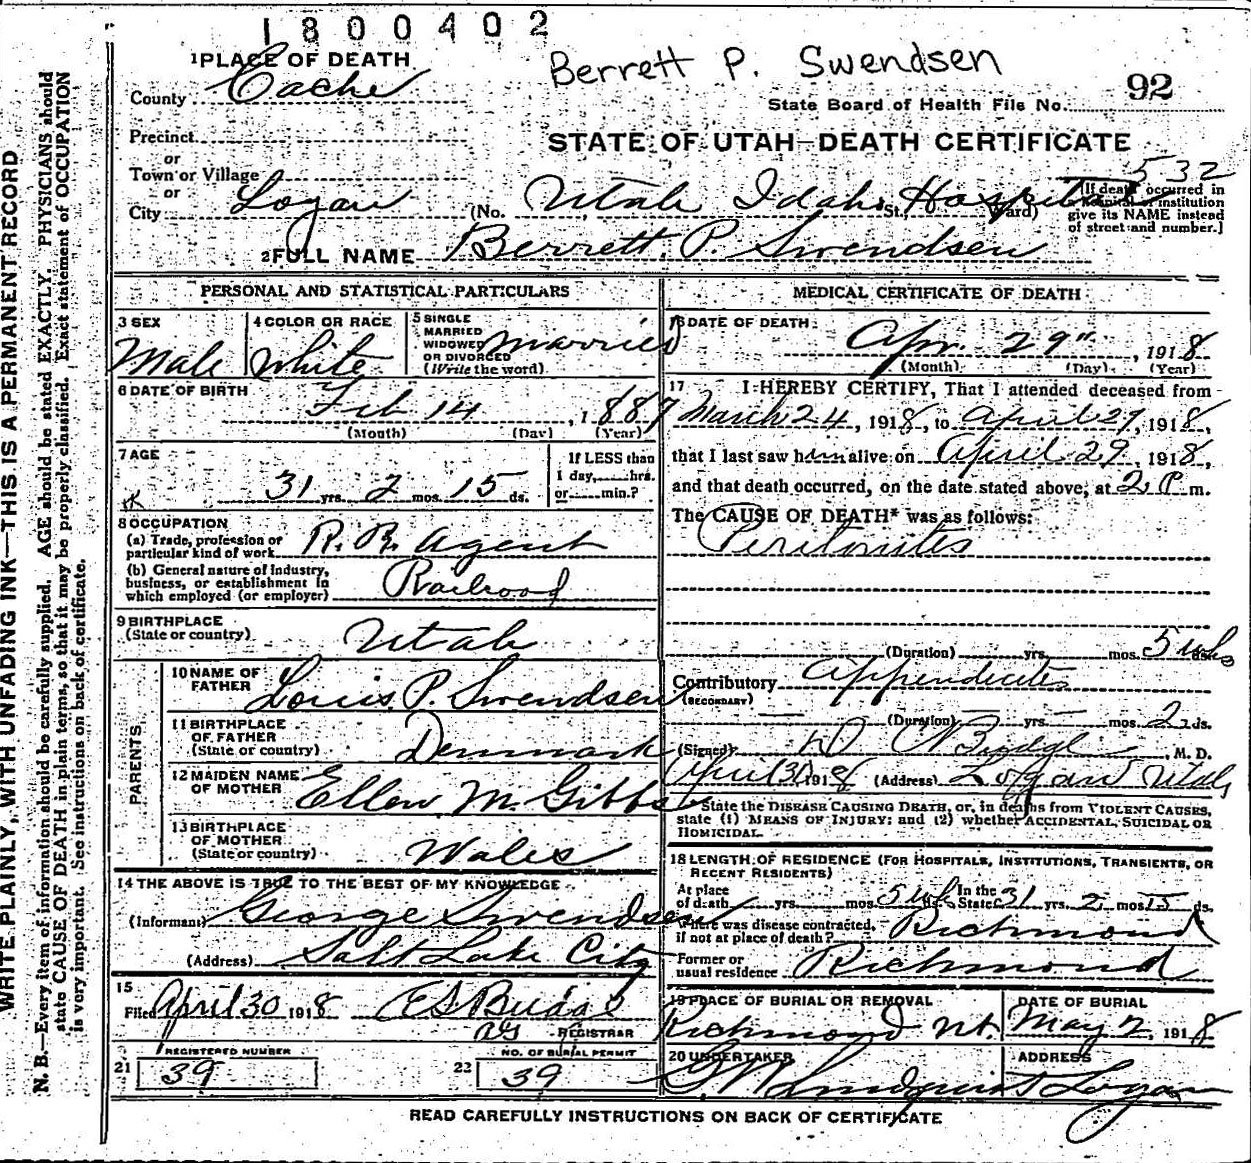 1800402
1 PLACE OF DEATH
Berrett P. Swendsen
County Cache
State Board of Health File No. 92
Precinct
STATE OF UTAH—DEATH CERTIFICATE
or
Town or Village
or
532
City Logan (No. Utah Idaho Hospital St., Ward)
[If death occurred in
a hospital or institution
give its NAME instead
of street and number.]
2 FULL NAME Berrett P Swendsen
PERSONAL AND STATISTICAL PARTICULARS
3 SEX
Male
4 COLOR OR RACE
White
5 SINGLE
MARRIED
WIDOWED
OR DIVORCED
(Write the word)
Married
6 DATE OF BIRTH
Feb 14, 1887
(Month) (Day) (Year)
7 AGE
31 yrs. 2 mos. 15 ds.
If LESS than
1 day, hrs.
or min.?
8 OCCUPATION
(a) Trade, profession or
particular kind of work R. R. Agent
(b) General nature of industry,
business, or establishment in
which employed (or employer) Railroad
9 BIRTHPLACE
(State or country) Utah
PARENTS
10 NAME OF
FATHER Louis P. Swendsen
11 BIRTHPLACE
OF FATHER
(State or country) Denmark
12 MAIDEN NAME
OF MOTHER Ellen M. Gibbs
13 BIRTHPLACE
OF MOTHER
(State or country) Wales
14 THE ABOVE IS TRUE TO THE BEST OF MY KNOWLEDGE
(Informant) George Swendsen
(Address) Salt Lake City
15
Filed April 30 1918 E S Budge
REGISTRAR
REGISTERED NUMBER
21 39
NO. OF BURIAL PERMIT
22 39
MEDICAL CERTIFICATE OF DEATH
16 DATE OF DEATH
Apr. 29", 1918
(Month) (Day) (Year)
17 I HEREBY CERTIFY, That I attended deceased from
March 24, 1918, to April 29, 1918,
that I last saw him alive on April 29, 1918,
and that death occurred, on the date stated above, at 2 P m.
The CAUSE OF DEATH* was as follows:
Peritonites
(Duration) yrs. mos. 5 wks ds.
Contributory Appendicites
(SECONDARY)
(Duration) yrs. mos. 2 ds.
(Signed) M. D.
April 30 1918 (Address) Logan Utah
State the DISEASE CAUSING DEATH, or, in deaths from VIOLENT CAUSES,
state (1) MEANS OF INJURY; and (2) whether ACCIDENTAL, SUICIDAL OR
HOMICIDAL.
18 LENGTH OF RESIDENCE (FOR HOSPITALS, INSTITUTIONS, TRANSIENTS, OR
RECENT RESIDENTS)
At place
of death yrs. mos. 5 wk ds. In the State 31 yrs. 2 mos 15 ds.
Where was disease contracted,
if not at place of death? Richmond
Former or
usual residence Richmond
19 PLACE OF BURIAL OR REMOVAL
Richmond Ut.
DATE OF BURIAL
May 2, 1918
20 UNDERTAKER
Lindquist
ADDRESS
Logan
READ CAREFULLY INSTRUCTIONS ON BACK OF CERTIFICATE
WRITE PLAINLY, WITH UNFADING INK—THIS IS A PERMANENT RECORD
N. B.—Every item of information should be carefully supplied. AGE should be stated EXACTLY. PHYSICIANS should
state CAUSE OF DEATH in plain terms, so that it may be properly classified. Exact statement of OCCUPATION
is very important. See instructions on back of certificate.